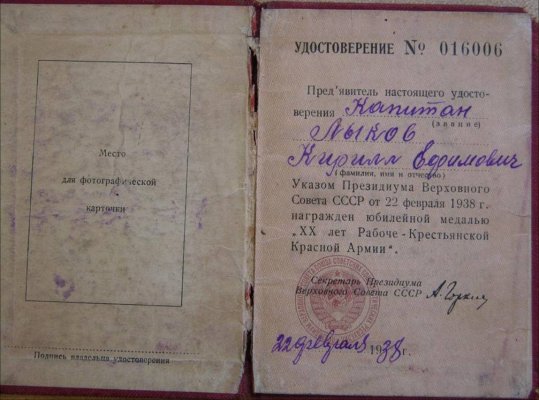 Место
для фотографической
карточки
Подпись владельца удостоверения
УДОСТОВЕРЕНИЕ № 016006
Пред'явитель настоящего удосто-
верения Капитан
(звание)
Лыков
Кирилл Ефимович
(фамилия, имя и отчество)
Указом Президиума Верховного
Совета СССР от 22 февраля 1938 г.
награжден юбилейной медалью
„XX лет Рабоче-Крестьянской
Красной Армии".
Секретарь Президиума
Верховного Совета СССР А. Горкин
22 февраля 1938 г.